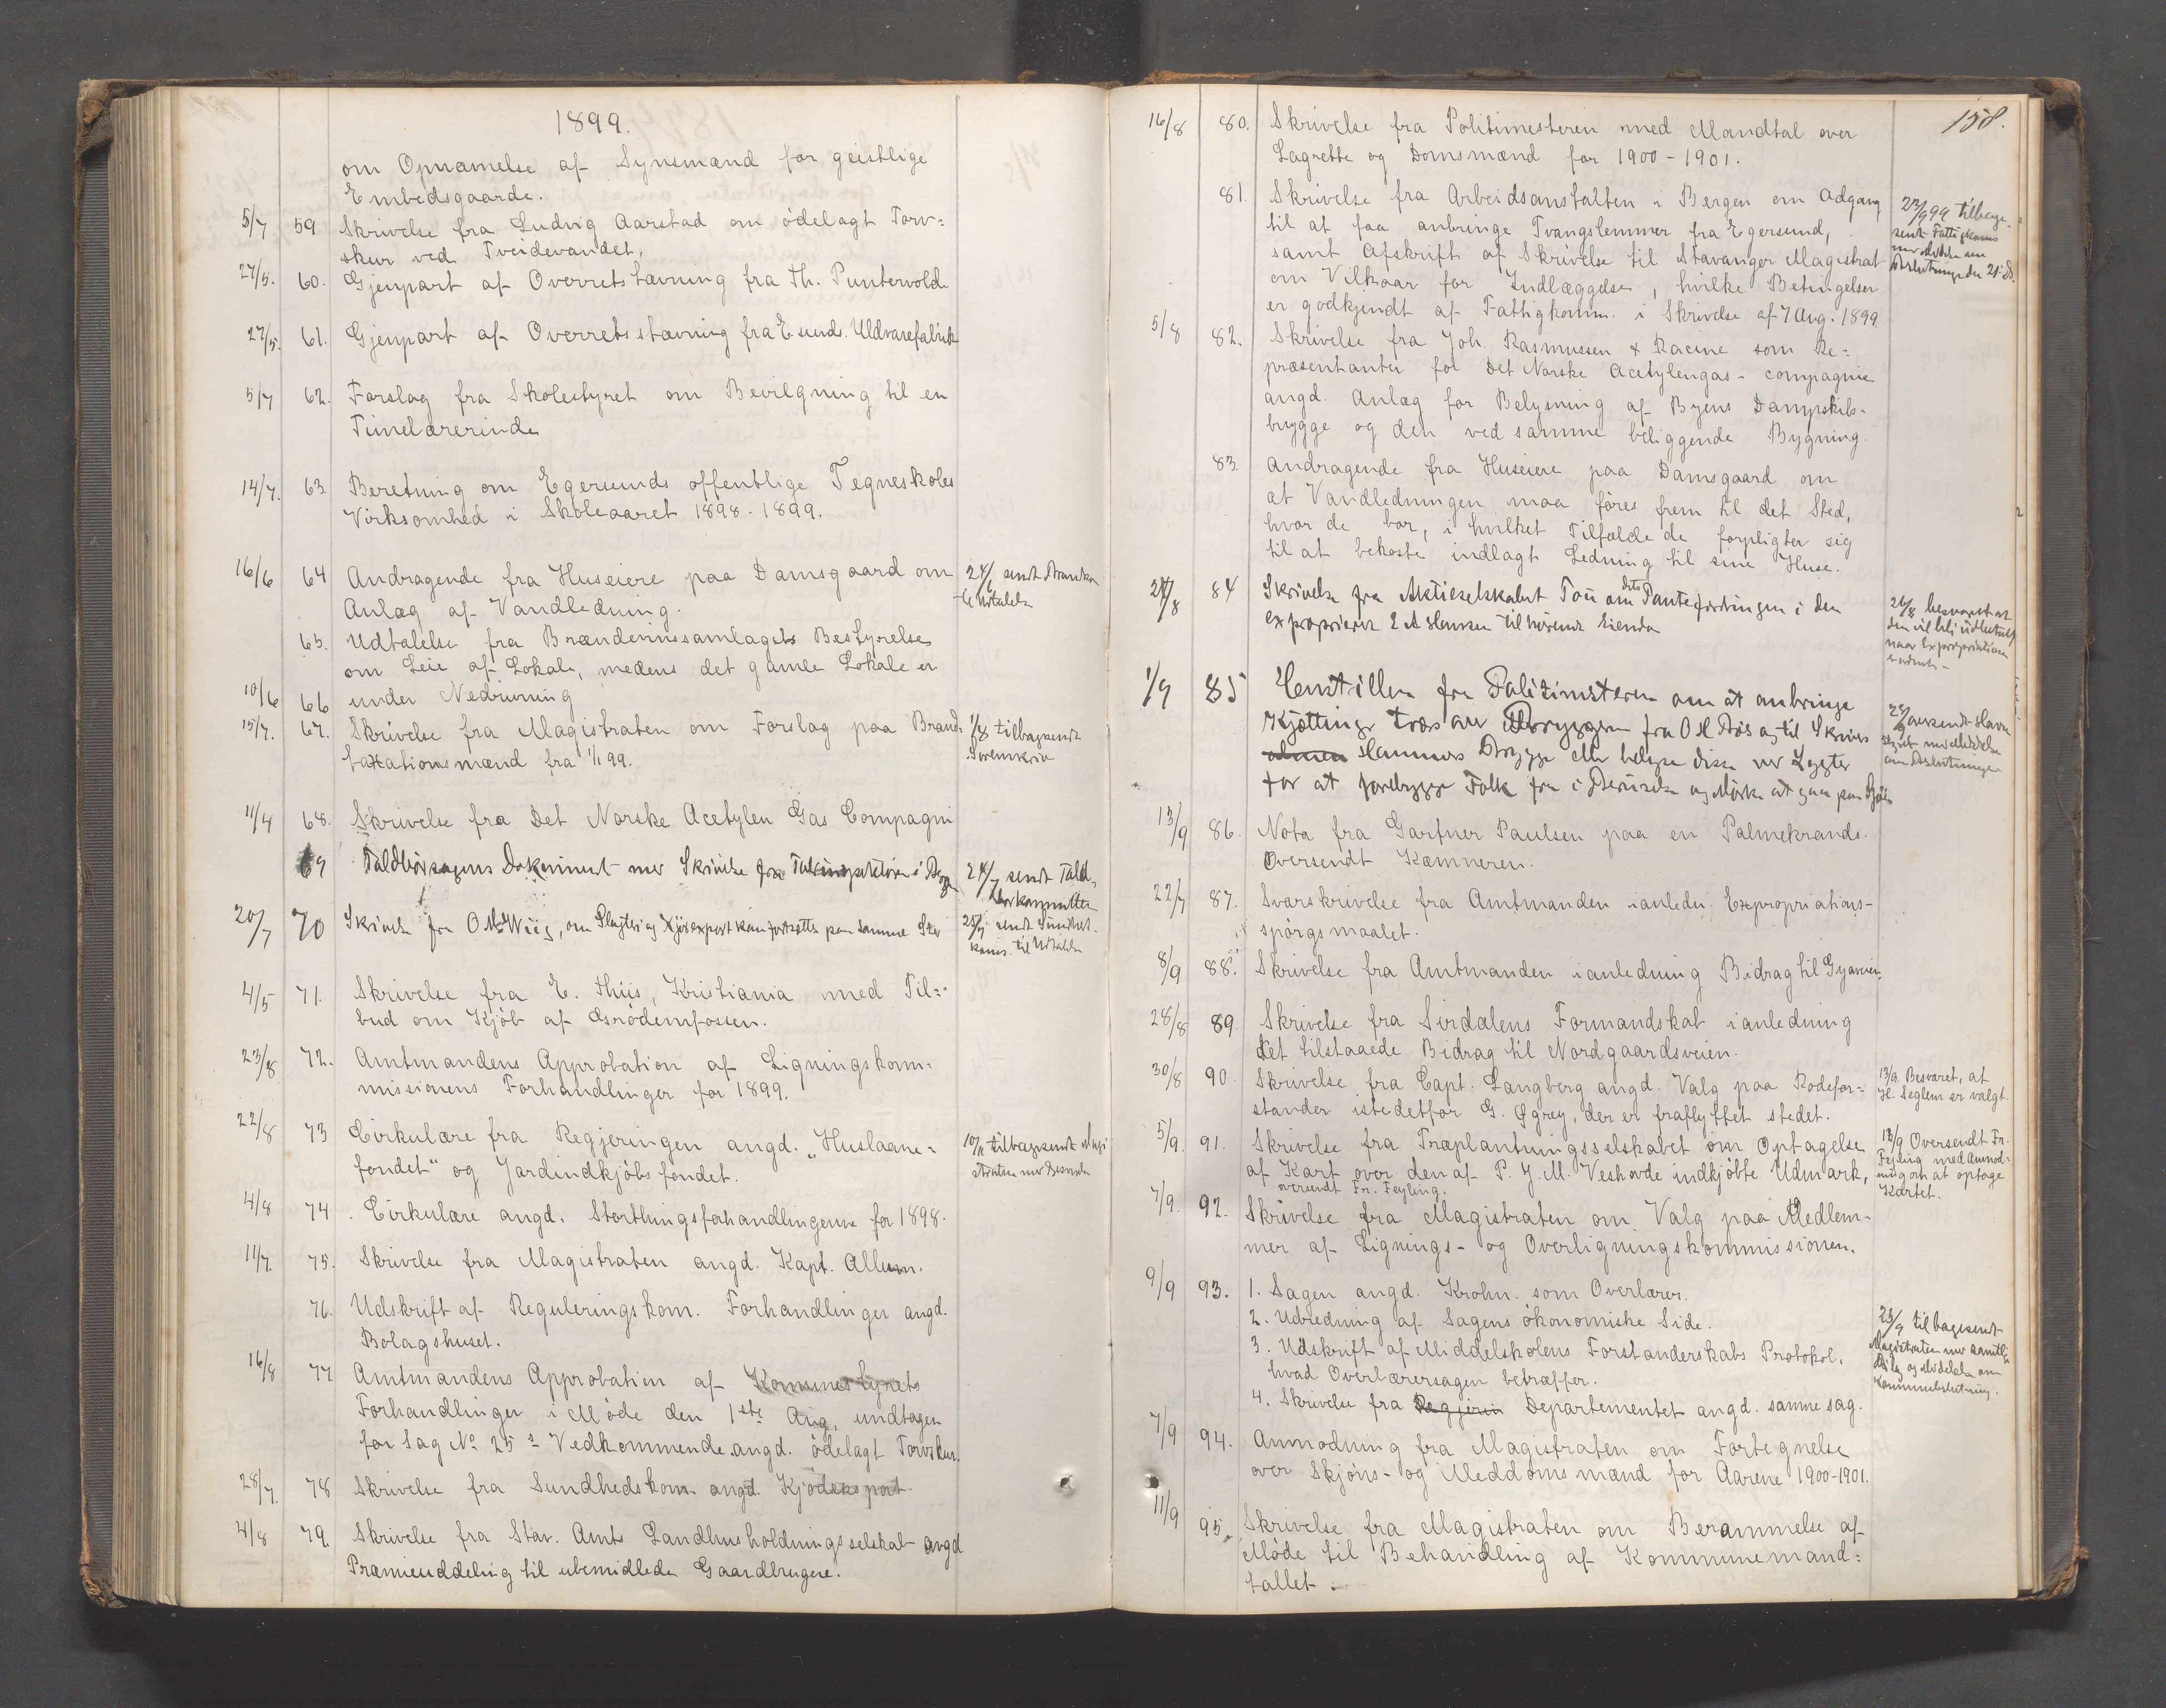 1899.
om Opnævnelse af Synsmænd for geistlige
Embedsgaarde.
5/7 59 Skrivelse fra Ludvig Aarstad om ödelagt Torv=
skur ved Tveidevandet.
27/5. 60. Gjenpart af Overretsstævning fra Th. Puntervold.
27/5. 61. Gjenpart af Overretsstævning fra E.sunds. Uldvarefabrik
5/7 62. Forslag fra Skolestyret om Bevilgning til en
Timelærerinde
14/7. 63. Beretning om Egersunds offentlige Tegneskoles
Virksomhed i Skoleaaret 1898-1899.
16/6 64 Andragende fra Huseiere paa Damsgaard om
Anlæg af Vandledning.
24/6 sendt Brandkom
til Udtalelse
65. Udtalelse fra Brændevinssamlagets Bestyrelse
om Leie af Lokale, medens det gamle Lokale er
10/6 66 under Nedrivning
15/7. 67. Skrivelse fra Magistraten om Forslag paa Brand-
taxationsmænd fra 1/1 99.
1/8 tilbagesendt
Sorenskriv
11/4 68. Skrivelse fra Det Norske Acetylen Gas Compagni
69 Toldbodsagens Dokument med Skrivelse fra Toldinspektören i Bergen
24/7 sendt Told-
bodkomitteen
20/7 70 Skrivelse fra O. M. Wiig, om Slagteri og Kjødexport kan fortsættes paa samme Sted
25/7 sendt Sundhets-
komis. til Udtalelse
4/5 71. Skrivelse fra E. Thiis, Kristiania med Til=
bud om Kjöb af Grödemfossen.
23/8 72. Amtmandens Approbation af Ligningskom=
missionens Forhandlinger for 1899.
22/8 73 Cirkulære fra Regjeringen angd. „Huslaane=
fondet" og Jordindkjöbsfondet.
10/11 tilbagesendt Magi
straten med Besvarelse
4/8 74. Cirkulære angd. Storthingsforhandlingerne for 1898.
11/7. 75. Skrivelse fra Magistraten angd. Kapt. Allum.
76. Udskrift af Reguleringskom. Forhandlinger angd.
Bolagshuset.
16/8 77 Amtmandens Approbation af Kommunestyrets
Forhandlinger i Möde den 1ste Aug. undtagen
for Sag No 25 = Vedkommende angd. ödelagt Torvskur.
28/7. 78 Skrivelse fra Sundhedskom. angd. Kjödexport.
4/8 79. Skrivelse fra Stav. Amts Landhusholdningsselskab angd
Præmieuddeling til ubemidlede Gaardbrugere.
158.
16/8 80. Skrivelse fra Politimesteren med Mandtal over
Lagrette og Domsmænd for 1900-1901.
81. Skrivelse fra Arbeidsanstalten i Bergen om Adgang
til at faa anbringe Tvangslemmer fra Egersund,
samt Afskrift af Skrivelse til Stavanger Magistrat
om Vilkaar for Indlæggelse, hvilke Betingelser
er godkjendt af Fattigkomm. i Skrivelse af 7 Aug. 1899
23/9 99 tilbage-
sendt Fattigkoms
med Meddelelse om
Beslutninge den 21 ds.
5/8 82. Skrivelse fra Joh. Rasmussen & Racine som Re=
præsentanter for Det Norske Acetylengas-compagnie
angd. Anlæg for Belysning af Byens Dampskibs-
brygge og den ved samme beliggende Bygning.
83. Andragende fra Huseiere paa Damsgaard om
at Vandledningen maa føres frem til det Sted,
hvor de bor, i hvilket Tilfælde de forpligter sig
til at bekoste indlagt Ledning til sine Huse.
24/8 84 Skrivelse fra Aktieselskabet Tou om dets Pantefordringer i den
exproprierede E A Hansen tilhørende Eiendom
26/8 besvaret at
den vil bli udbetalt
naar Expropriationen
er ordnet -
1/9 85 Henstillen fra Politimesteren om at anbringe
Kjøttinge tvers over Bryggen fra O H Aas og til Skrivers
Hammers Brygge eller belyse disse ved Lygter
for at forebygge Folk fra i Beruselse og Mörke at gaa paa Sjøen
23/9 oversendt Havne
styret med Meddelelse
om Beslutningen
13/9 86. Nota fra Gartner Paulsen paa en Palmekrands.
Oversendt Kæmneren.
22/7 87. Svarskrivelse fra Amtmanden ianledn. Expropriations-
spörgsmaalet.
8/9 88. Skrivelse fra Amtmanden ianledning Bidrag til Gyaveien.
28/8 89 Skrivelse fra Sirdalens Formandskab ianledning
det tilstaaede Bidrag til Nordgaardsveien.
30/8 90. Skrivelse fra Capt. Langberg angd. Valg paa Rodefor=
stander istedetfor G. Egrey, der er fraflyttet stedet.
13/9. Besvaret, at
H. Seglem er valgt.
5/9. 91. Skrivelse fra Træplantningsselskabet om Optagelse
af Kart over den af P. J. M. Veshovde indkjöbte Udmark,
oversendt Fr. Feyling.
13/9 Oversendt Fr.
Feyling med Anmod-
ning om at optage
Kartet.
7/9. 92. Skrivelse fra Magistraten om Valg paa Medlem-
mer af Lignings- og Overligningskommissionen.
9/9 93. 1. Sagen angd. Krohn som Overlærer.
2. Udredning af Sagens ökonomiske Side.
3. Udskrift af Middelskolens Forstanderskabs Protokol,
hvad Overlærersagen betræffer.
4. Skrivelse fra Regjerin Departementet angd. samme sag.
23/9 tilbagesendt
Magistraten med samtlige
Bilag og Meddelelse om
Kommunebeslutning.
7/9 94. Anmodning fra Magistraten om Fortegnelse
over Skjöns- og Meddomsmænd for Aarene 1900-1901.
11/9 95. Skrivelse fra Magistraten om Berammelse af
Möde til Behandling af Kommunemand=
tallet.